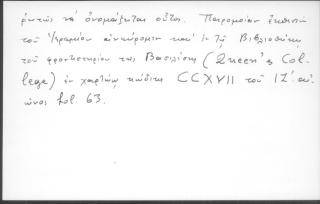 ρωτώς νά ὀνομάζεται οὕτως. Παρομοίαν ἔκδοσιν
τοῦ Ψαλμίου ἀνεύρομεν καί ἐν τῇ Βιβλιοθήκῃ
τοῦ φροντιστηρίου τῆς Βασιλίσσης (Queen's Col-
lege) ἐν χαρτώῳ κώδικι CCXVII τοῦ ΙΖ' αἰ-
ῶνος fol. 63.